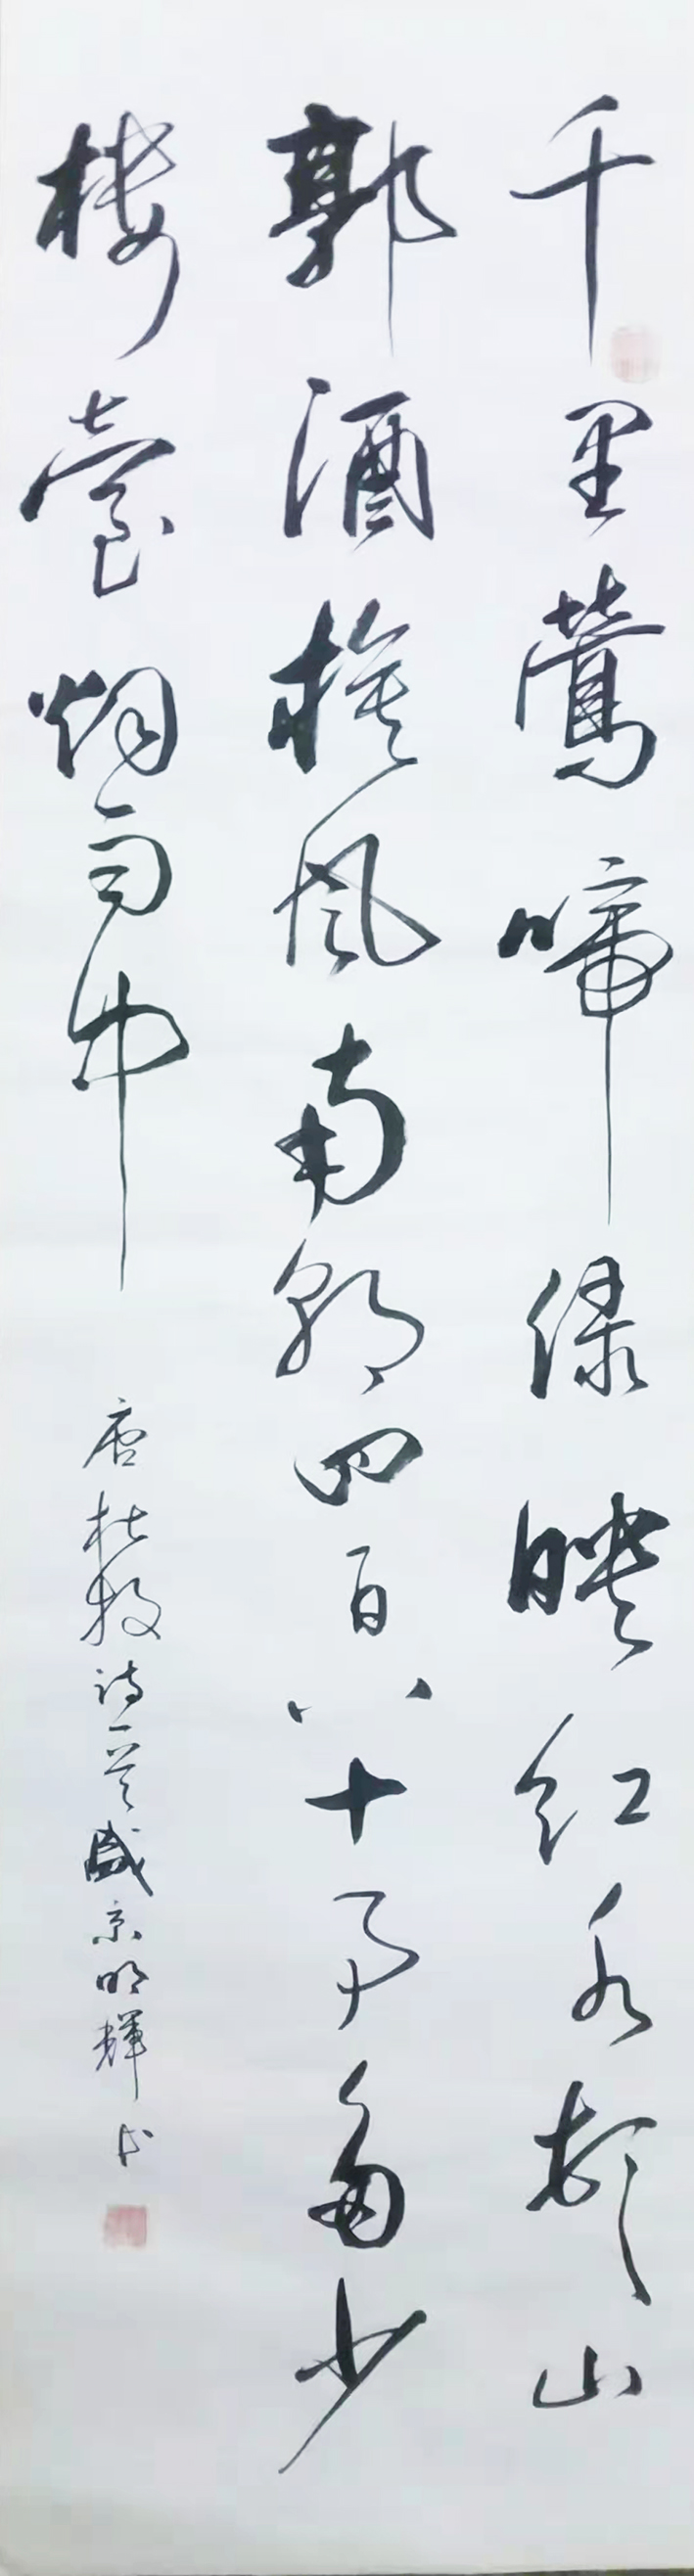 千里莺啼绿映红水村山
郭酒旗风南朝四百八十寺多少
楼台烟雨中
唐杜牧诗一首盛京明辉书